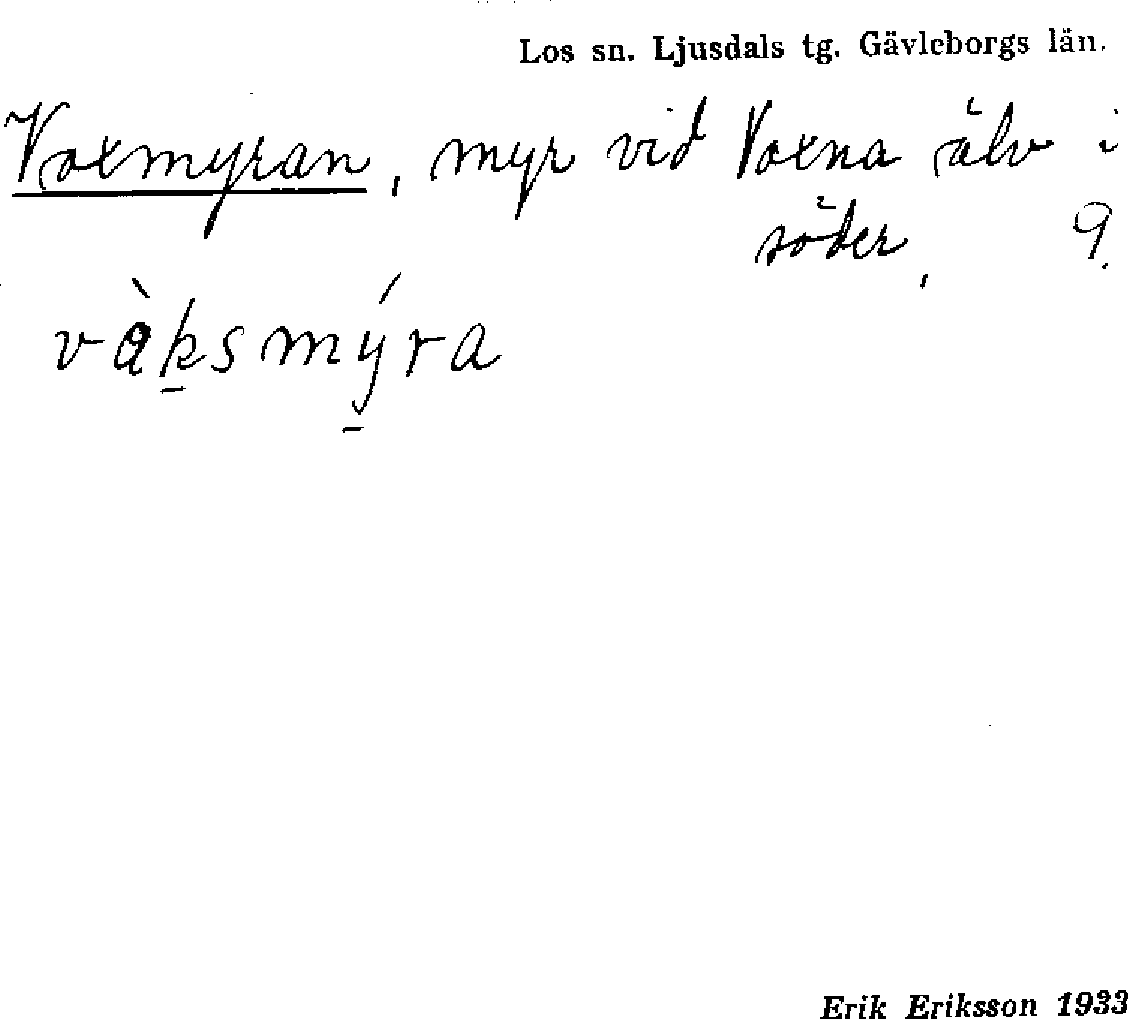 Los sn. Ljusdals tg. Gävleborgs län.
Voxmyran, myr vid Voxna älv i
söder, 9.
våk̠smý̠ra
Erik Eriksson 1933